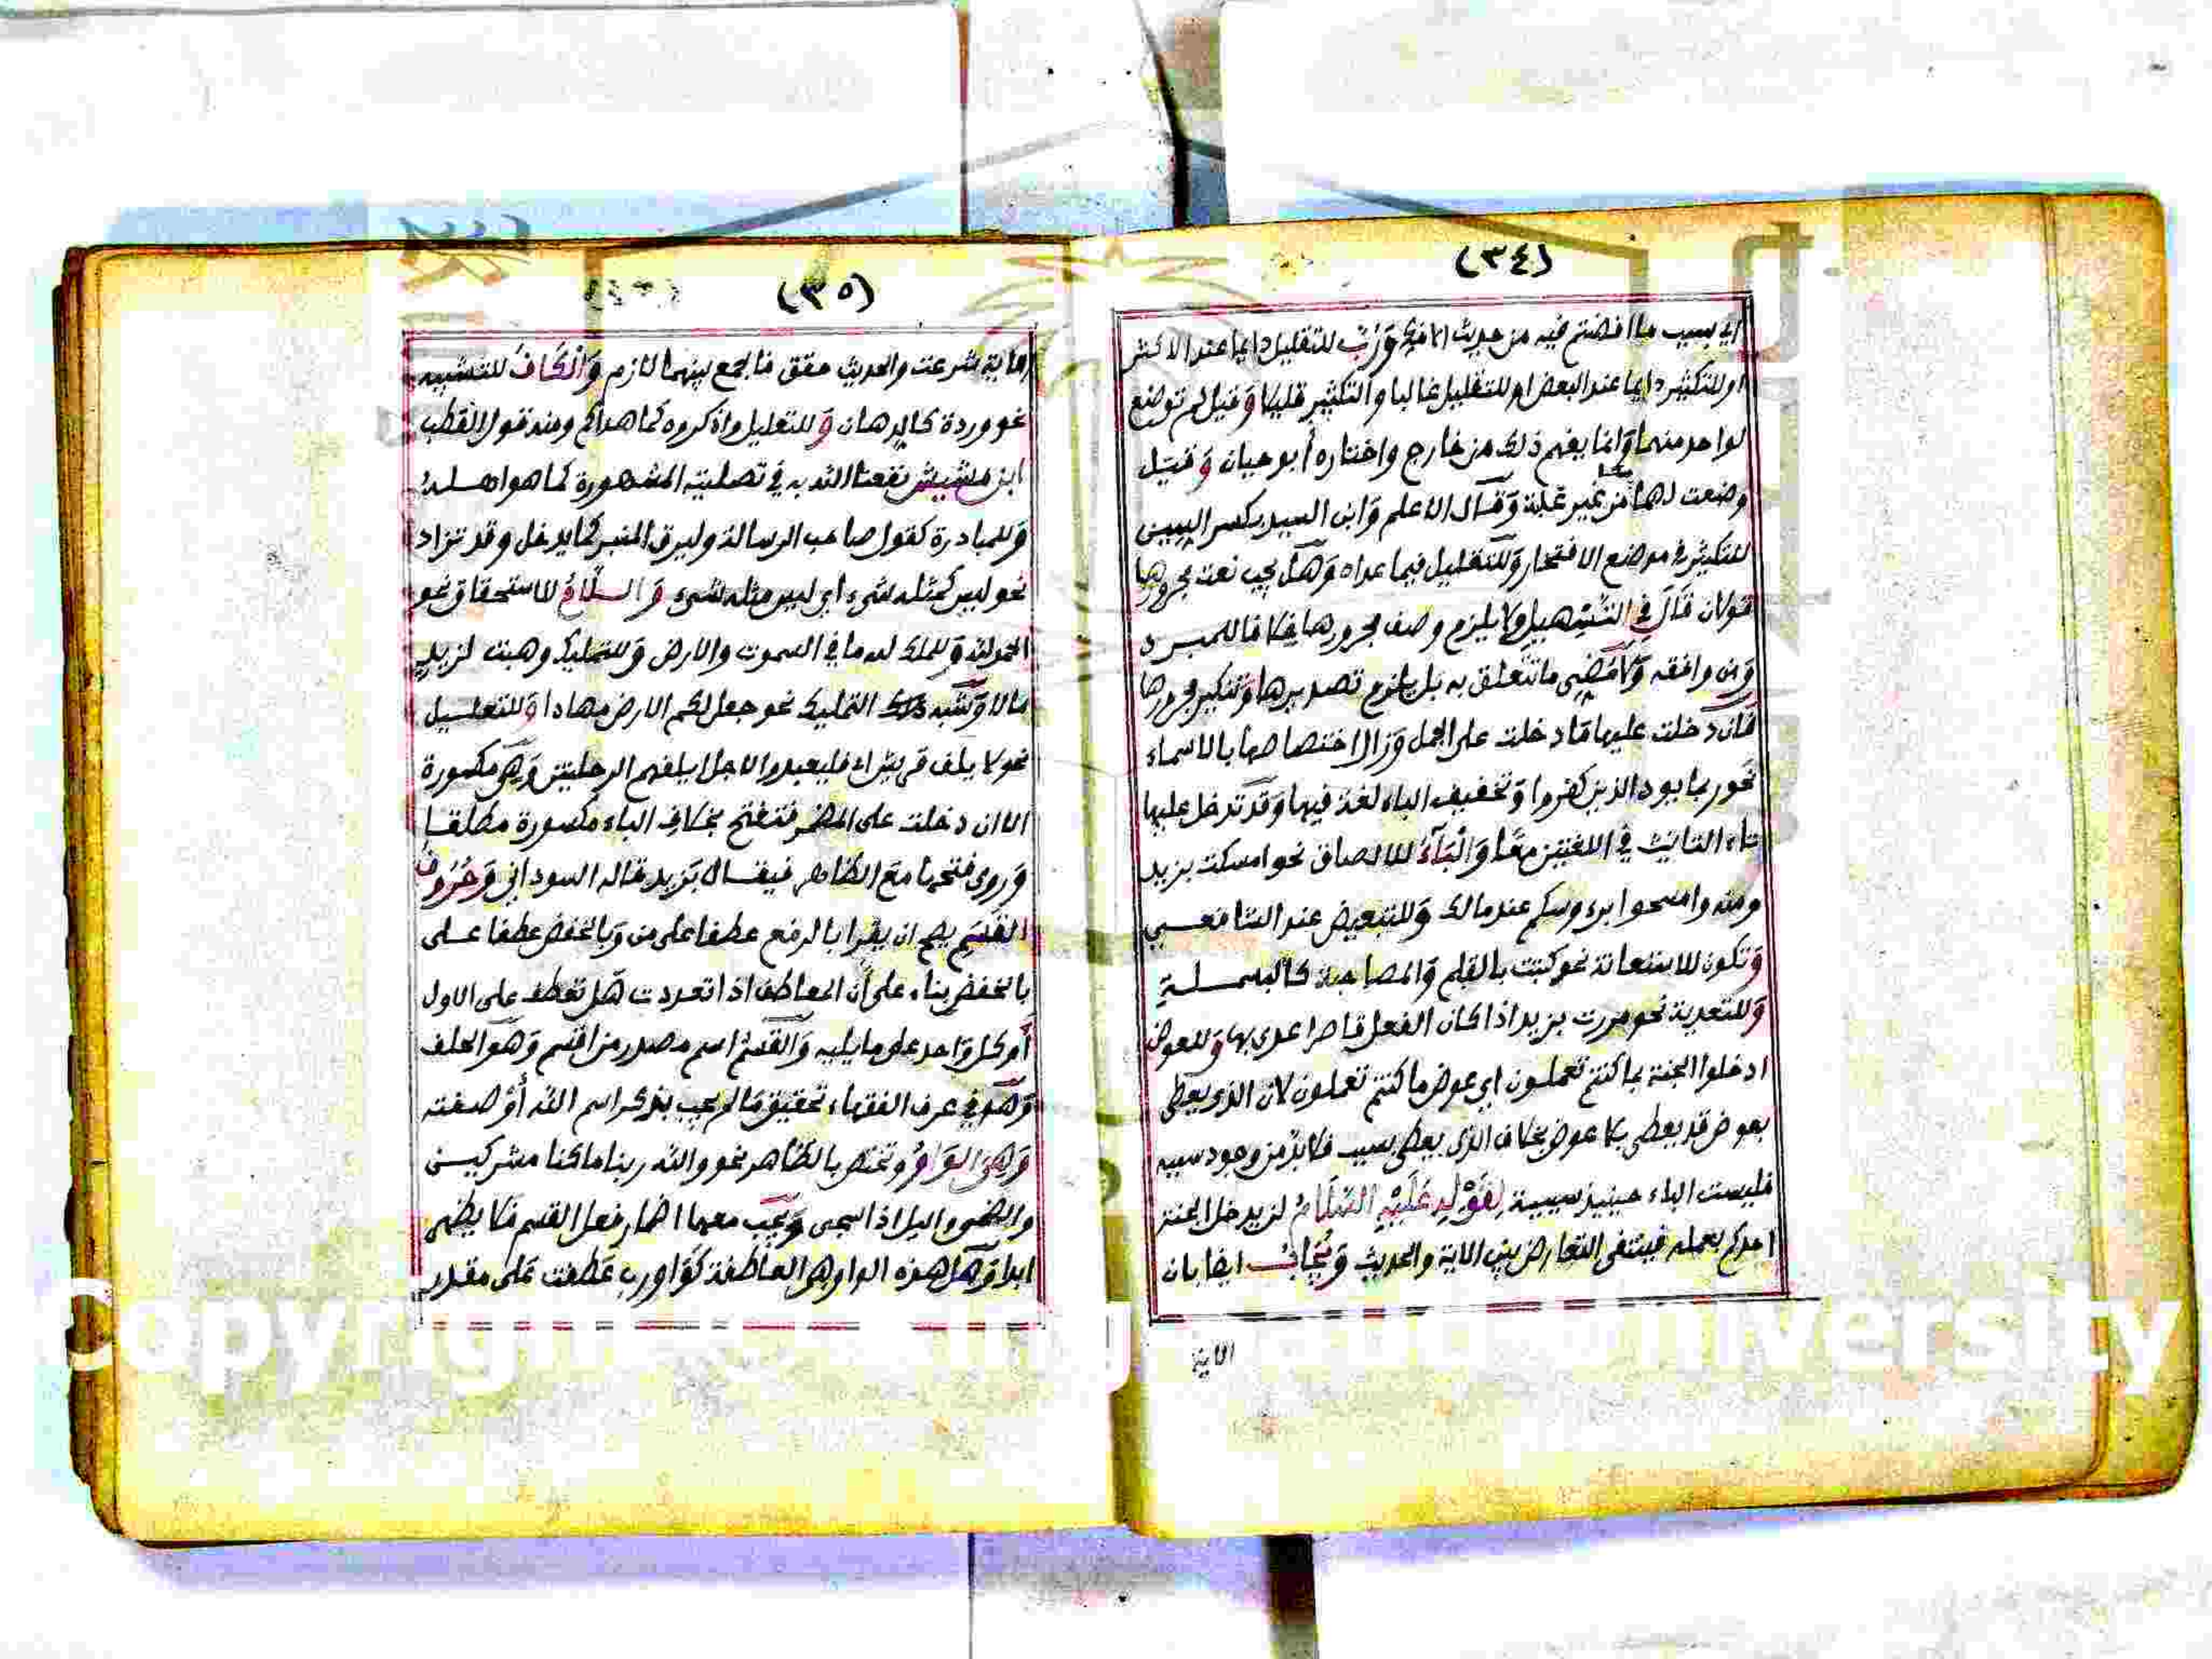 (٣٤)
اي بسبب ما افضتم فيه من حديث الافك وَرُبّ للتقليل دايما عند الاكثر
او للتكثير دايما عند البعض او للتقليل غالبا والتكثير قليلا وَقيل لم توضع
لواحد منهما وَانما يفهم ذلك من خارج واختاره أبو حيان وَقيل
وضعت لهما من غير غلبة وَقال الاعلم وَابن السيد بكسر السين
للتكثير في موضع الافتخار وَللتقليل فيما عداه وَهَل يجب نعت مجرورها
قولان قَالَ في التسْهيل ولا يلزم وصف مجرورها خلافا للمبرد
وَمن وافقه وَلا مُضِي ما تتعلق به بل يلزم تصديرها وَتنكير مجرورها
فَان دخلت عليها مَا دخلت على الجمل وَزال اختصاصها بالاسماء
نحو ربما يود الذين كفروا وَتخفيف الباء لغة فيها وَقد تدخل عليها
تاء التانيث في اللغتين معًا وَالْبَآءُ للالصاق نحو امسكت بزيد
ومنه وامسحوا برءوسكم عند مالك وَللتبعيض عند الشافعي
وَتكون للاستعانة نحو كتبت بالقلم وَالمصاحبة كالبسملةِ
وَللتعدية نحو مررت بزيد اذا كان الفعل قاصرا عدي بها وَللعوض
ادخلوا الجنة بما كنتم تعملون اي عوض ما كنتم تعملون لان الذي يعطى
بعوض قد يعطى بلا عوض بخلاف الذي يعطى بسبب فلا بدّ من وجود سببه
فليست الباء حينيذ سببية لِقَوْلِهِ عَلَيْهِ السَّلَامُ لن يدخل الجنة
احدكم بعمله فينتفى التعارض بين الاية والحديث وَيُجَابُ ايضا بان
الاية
(٣٥)
الاية شرعت والحديث حقق فالجمع بينهما لازم وَالْكَافُ للتشبيه
نحو وردة كالدهان وَللتعليل واذكروه كما هداكم ومنه قول القطب
ابن مشيش نفعنا الله به في تصليته المشهورة كما هو اهله
وَللمبادرة كقول صاحب الرسالة وليرق المنبر كما يدخل وقد تزاد
نحو ليس كمثله شيء اي ليس مثله شيء وَاللَّامُ للاستحقاق نحو
الحمد لله وَللملك له ما في السموت والارض وَللتمليك وهبت لزيد
مالا وَشبه التمليك نحو جعل لكم الارض مهادا وَللتعليل
نحو لايلف قريش اي فليعبدوا لاجل ايلفهم الرحلتين وَهي مكسورة
الا ان دخلت على المضمر فتفتح بخلاف الباء مكسورة مطلقا
وَروى فتحها مع الظاهر فيقال بَزيد قاله السوداني وَحُرُوفُ
القَسَمِ يصح ان يقرا بالرفع عطفا على من وَبالخفض عطفا على
بالخفض بناء على أن المعاطف اذا تعددت هَل تعطف على الاول
أَو كل وَاحد على ما يليه وَالقسمُ اسم مصدر من اقسم وَهو الحلف
وَهو في عرف الفقهاء تحقيق مَا لم يجب بذكر اسم الله أَوْ صفته
وَهِيَ الوَاوُ وتختص بالظاهر نحو والله ربنا ما كنا مشركين
والضحى واليل اذا سجى وَيجب معها اضمار فعل القسم فلا يظهر
ابدا وَهَل هذه الواو هي العاطفة كوَاو رب عطفت على مقدر
Copyright © King Saud University